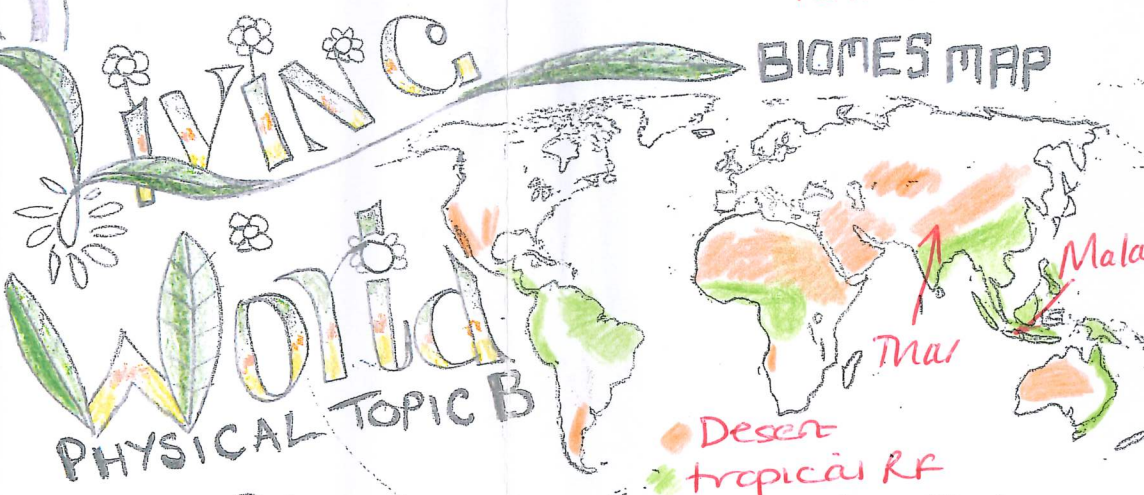 Living
World
PHYSICAL TOPIC B
BIOMES MAP
Mala
Thar
Desert
tropical RF